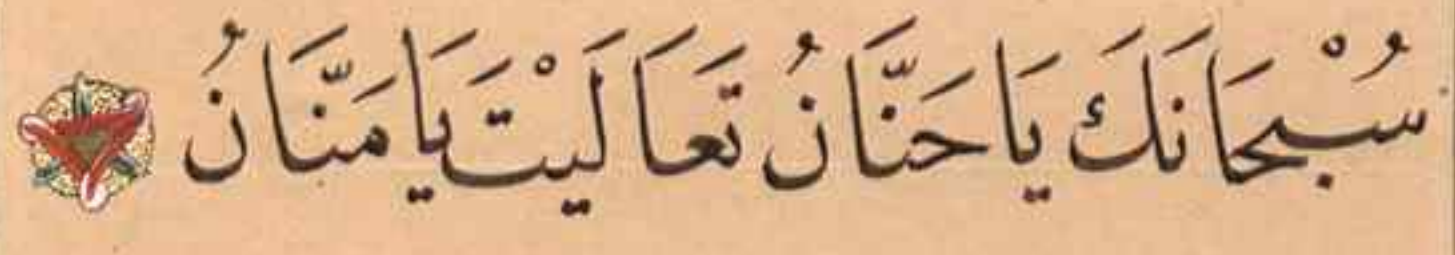 سُبْحَانَكَ يَا حَنَّانُ تَعَالَيْتَ يَا مَنَّانُ